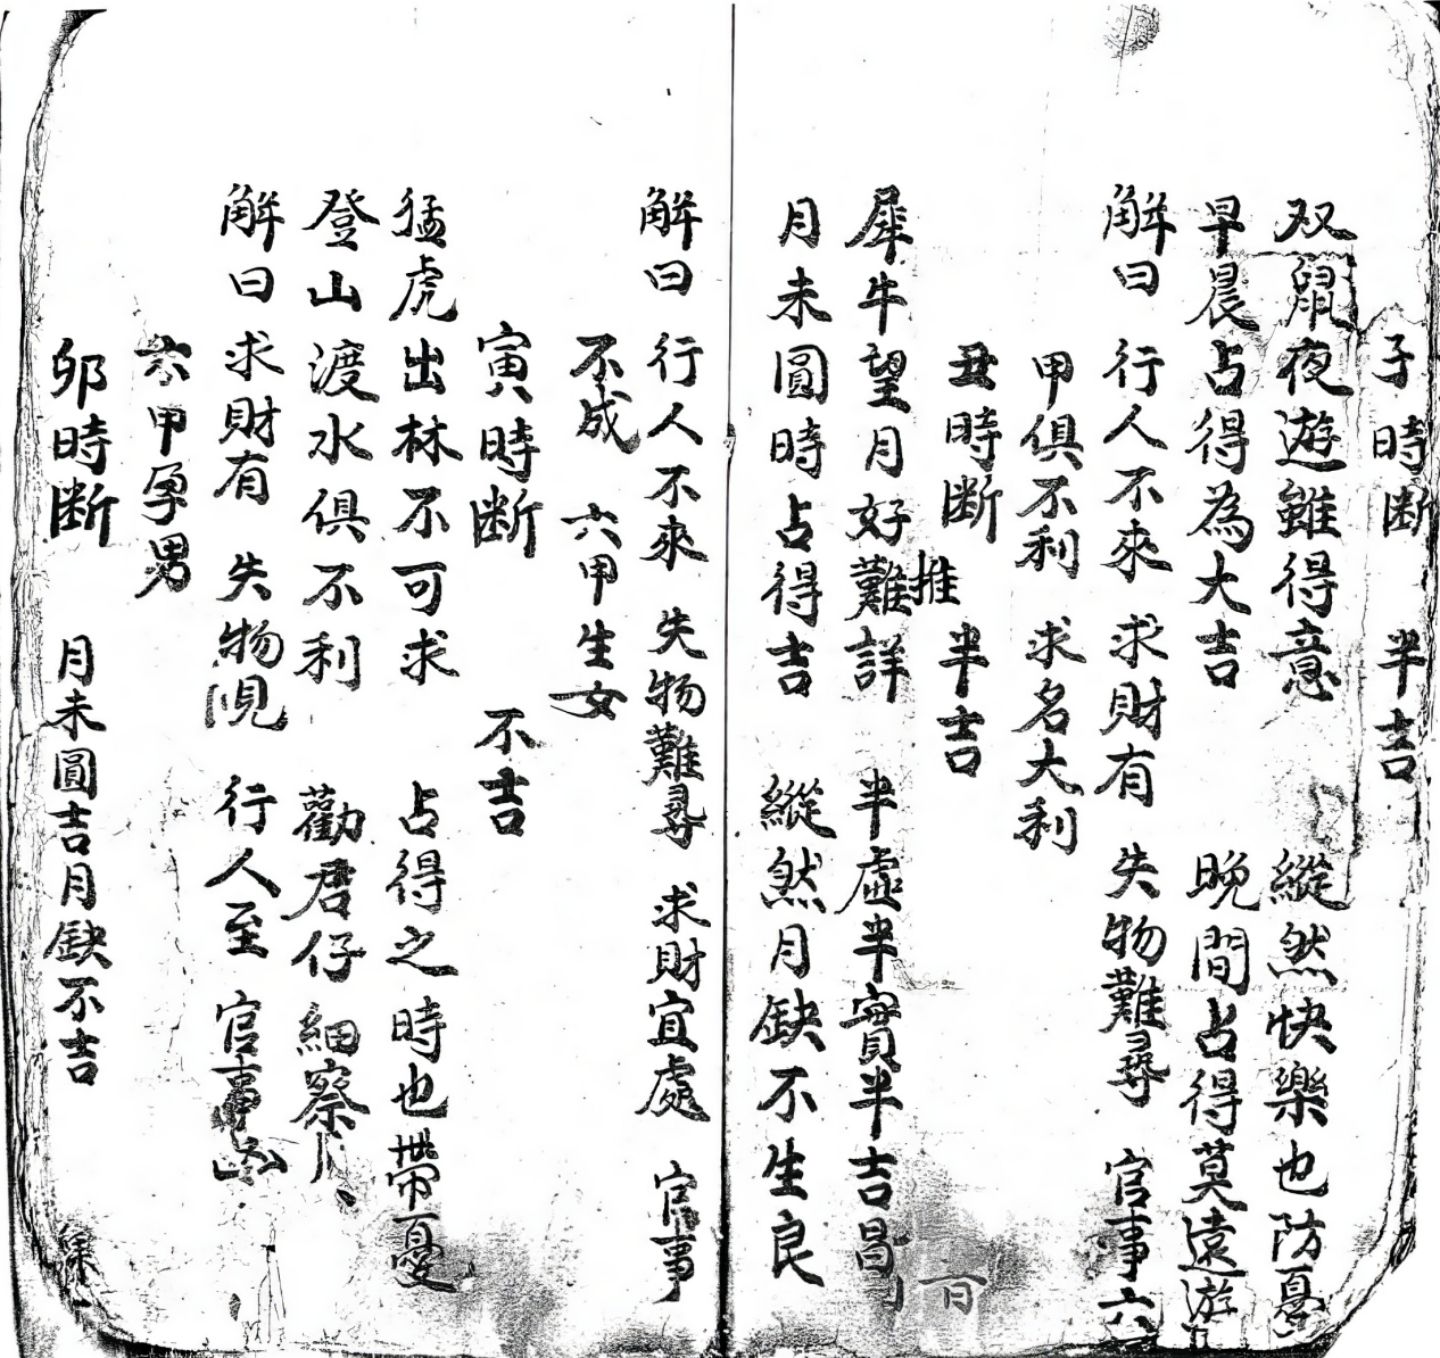 子時断 半吉
双鼠夜遊雖得意 縱然快樂也防憂
早晨占得為大吉 晚間占得莫遠遊
解曰 行人不來 求財有 失物難尋 官事六
甲俱不利 求名大利
丑時断 推 半吉
犀牛望月好難詳 半虛半實半吉昌
月未圓時占得吉 縱然月缺不生良
解曰 行人不來 失物難尋 求財宜處 官事
不成 六甲生女
寅時断 不吉
猛虎出林不可求 占得之時也帶憂
登山渡水俱不利 勸君仔細察
解曰 求財有 失物現 行人至 官事凶
六甲孕男
卯時断 月未圓吉月缺不吉